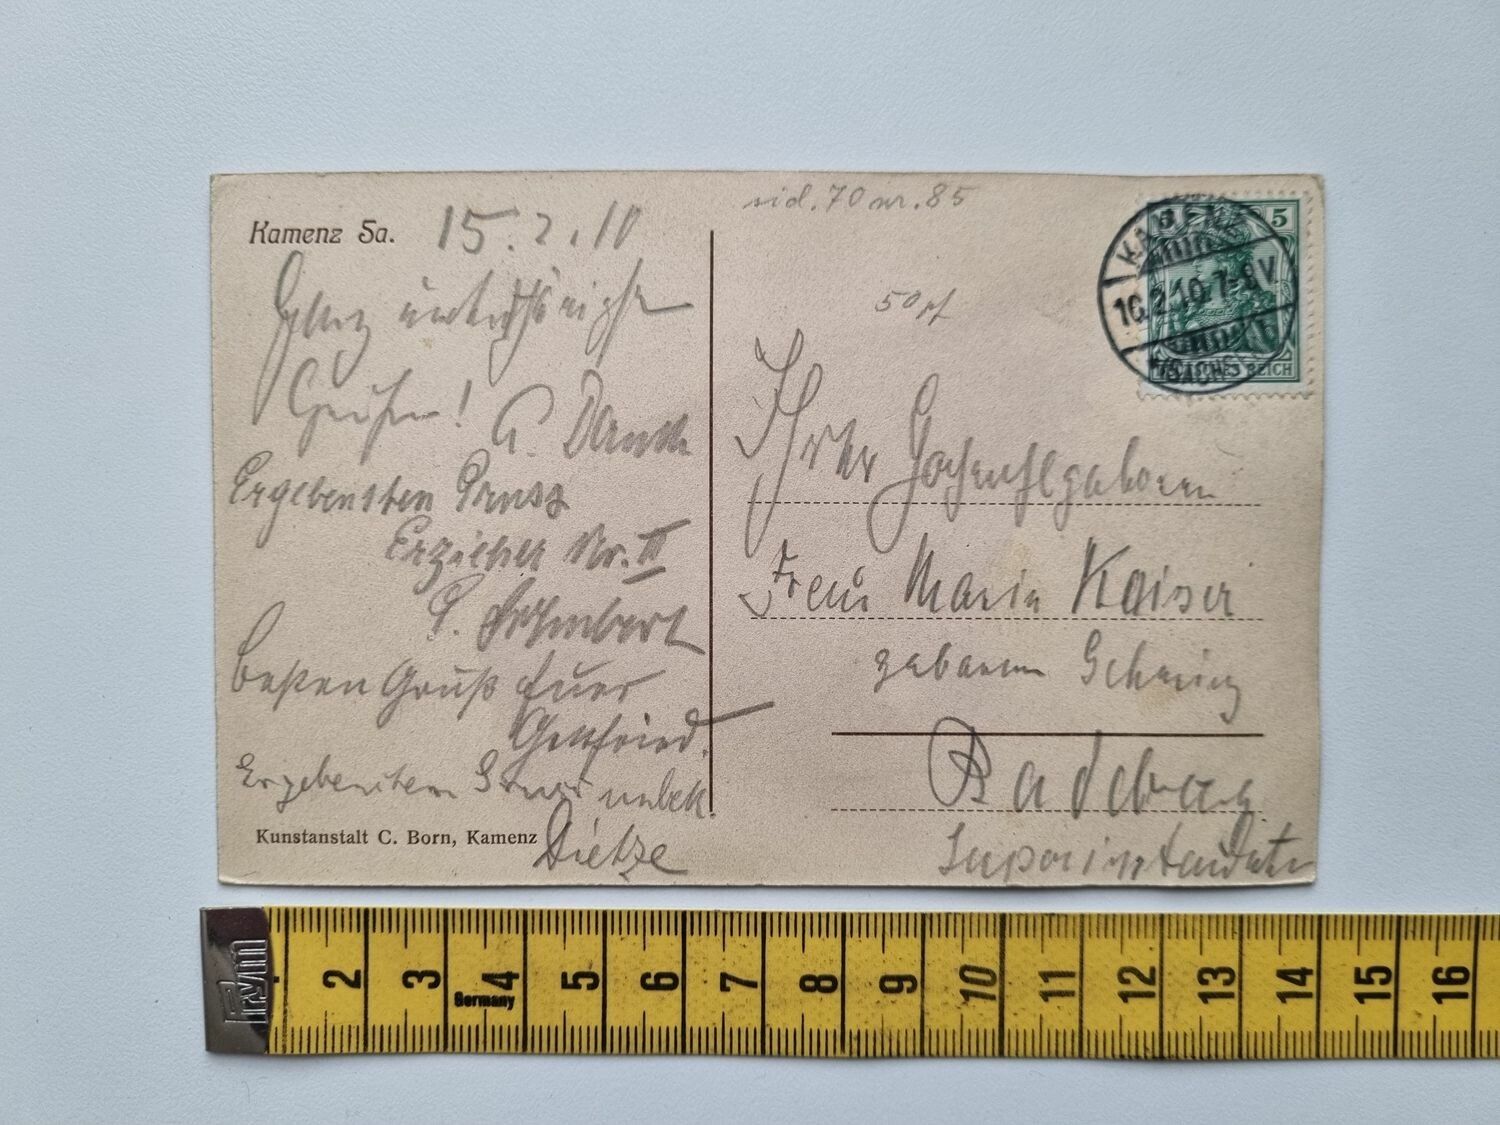 Kamenz Sa. 15.2.10
Ganz unterthänigste
Grüße! G.
Ergebensten Gruss
Erzieher Nr. II
besten Gruß Euer
Gottfried.
Ergebensten Gruss unbek.
Dietze
Kunstanstalt C. Born, Kamenz
sid. 70 nr. 85
50 pf
KAMENZ
10.2.10. 7-8V.
(SACHSEN)
5 5
DEUTSCHES REICH
Ihrer Hochwohlgeboren
Frau Maria Kaiser
geborene
Radeberg
Germany
2 3 4 5 6 7 8 9 10 11 12 13 14 15 16
Prym